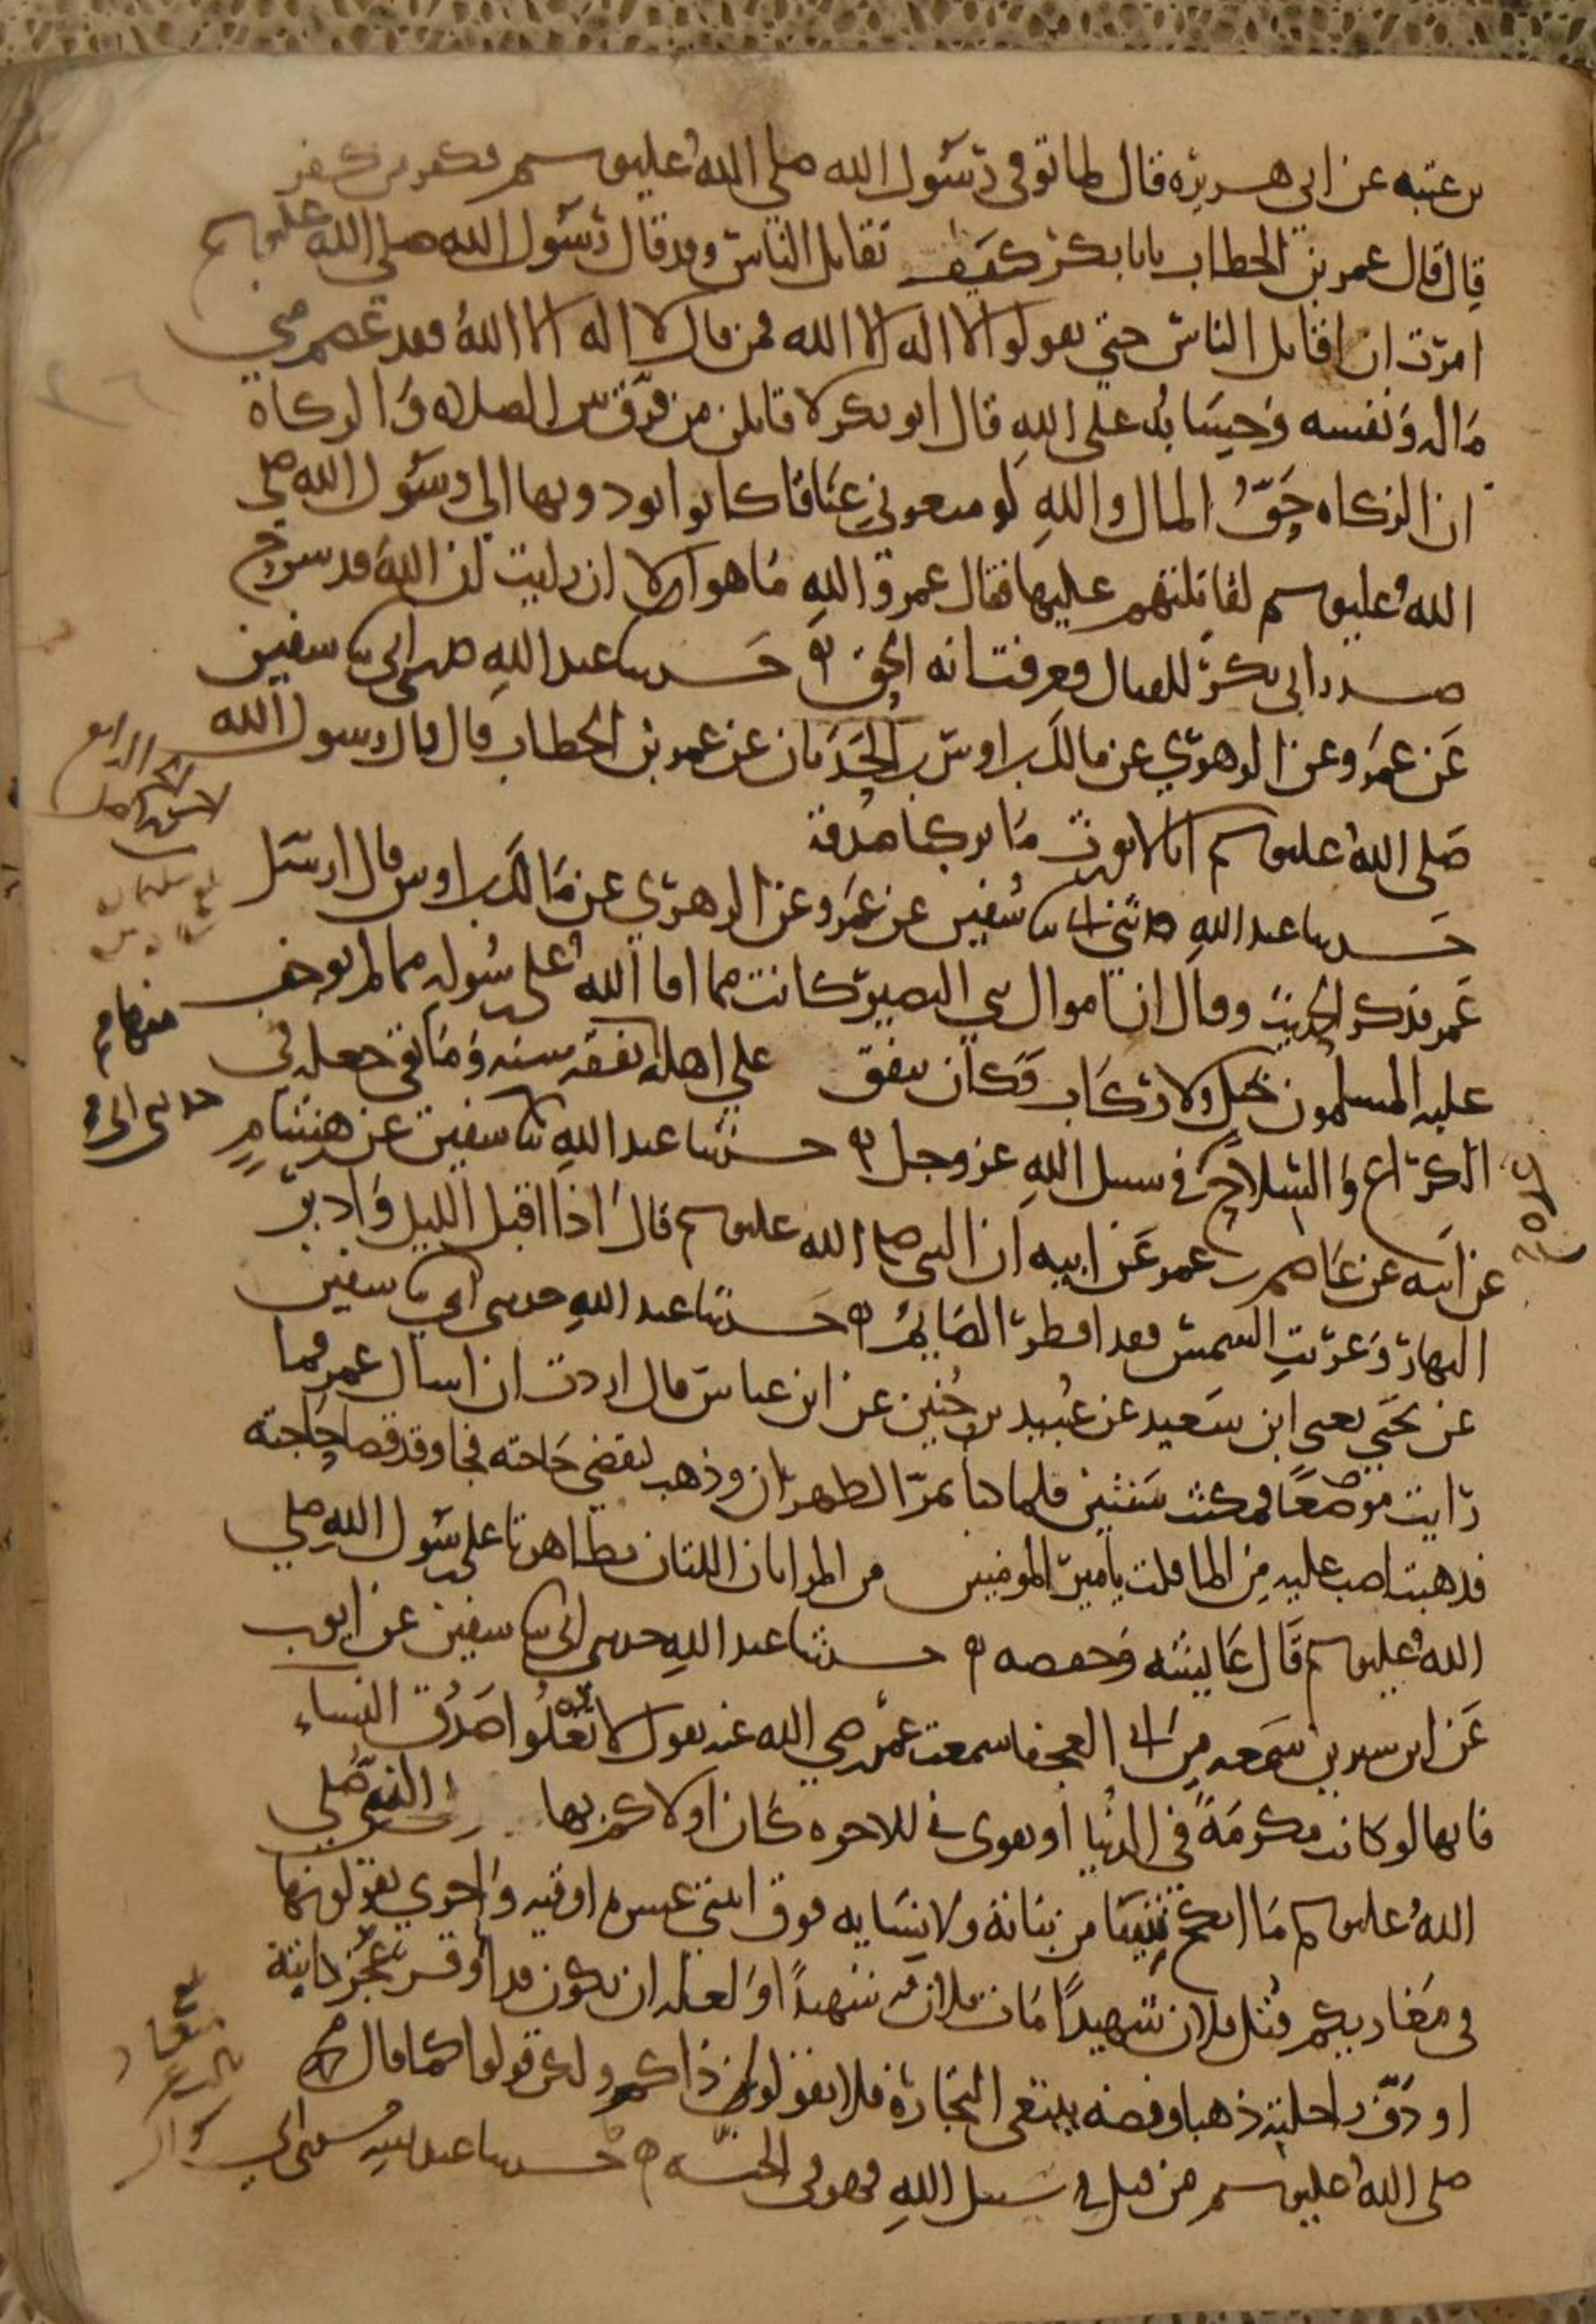 بن عتبه عن ابى هريره قال لما توفي رسول الله صلى الله عليه وسلم وكفر من كفر
قال قال عمر بن الخطاب يابا بكر كيف تقاتل الناس وقد قال رسول الله صلى الله عليه وسلم
امرت ان اقاتل الناس حتي يقولوا لا اله الا الله فمن قال لا اله الا الله فقد عصم مني
ماله ونفسه وحسابه على الله قال ابو بكر لاقاتلن من فرق بين الصلاه والزكاة
ان الزكاه حق المال والله لو منعوني عناقا كانوا يودونها الي رسول الله صلى
الله عليه وسلم لقاتلتهم عليها فقال عمر والله ما هو الا ان رايت ان الله قد شرح
صدر ابي بكر للقتال فعرفت انه الحق حدثنا عبد الله حدثني ابي ثنا سفين
عن عمرو عن الزهري عن مالك بن اوس بن الحدثان عن عمر بن الخطاب قال قال رسول الله
صلى الله عليه وسلم انا لا نورث ما تركنا صدقة
حدثنا عبد الله حدثني ابي ثنا سفين عن عمرو عن الزهري عن مالك بن اوس قال ارسل
عمر فذكر الحديث وقال ان اموال بني النضير كانت مما افا الله على رسوله مما لم يوجف
عليه المسلمون بخيل ولا ركاب فكان ينفق على اهله نفقه سنه وما بقي جعله في
الكراع والسلاح في سبيل الله عز وجل حدثنا عبد الله ثنا سفين عن هشام
عن ابيه عن عاصم بن عمر عن ابيه ان النبي صلى الله عليه وسلم قال اذا اقبل الليل وادبر
النهار وغربت الشمس فقد افطر الصائم حدثنا عبد الله حدثني ابي ثنا سفين
عن يحيي يعني ابن سعيد عن عبيد بن حنين عن ابن عباس قال اردت ان اسال عمر فما
رايت موضعا فمكثت سنتين فلما كنا بمر الظهران وذهب ليقضي حاجته فجا وقد قضا حاجته
فذهبت اصب عليه من الما فقلت يا امير المومنين من المراتان اللتان تظاهرتا على رسول الله صلى
الله عليه وسلم قال عايشه وحفصه حدثنا عبد الله حدثني ابي ثنا سفين عن ايوب
عن ابن سيرين سمعه من ابي العجفا سمعت عمر رضي الله عنه يقول لا تغلوا صدق النساء
فانها لو كانت مكرمة في الدنيا او تقوى في الاخره كان اولاكم بها النبي صلى
الله عليه وسلم ما انكح شيئا من بناته ولا نسايه فوق اثنتي عشره اوقيه واخري تقولونها
في مغازيكم قتل فلان شهيدا مات فلان شهيدا ولعله ان يكون قد اوقر عجز دابته
او دف راحلته ذهبا وفضه يبتغي التجارة فلا تقولوا ذاكم ولكن قولوا كما قال محمد
صلى الله عليه وسلم من قتل في سبيل الله فهو في الجنه حدثنا عبد الله حدثني ابي